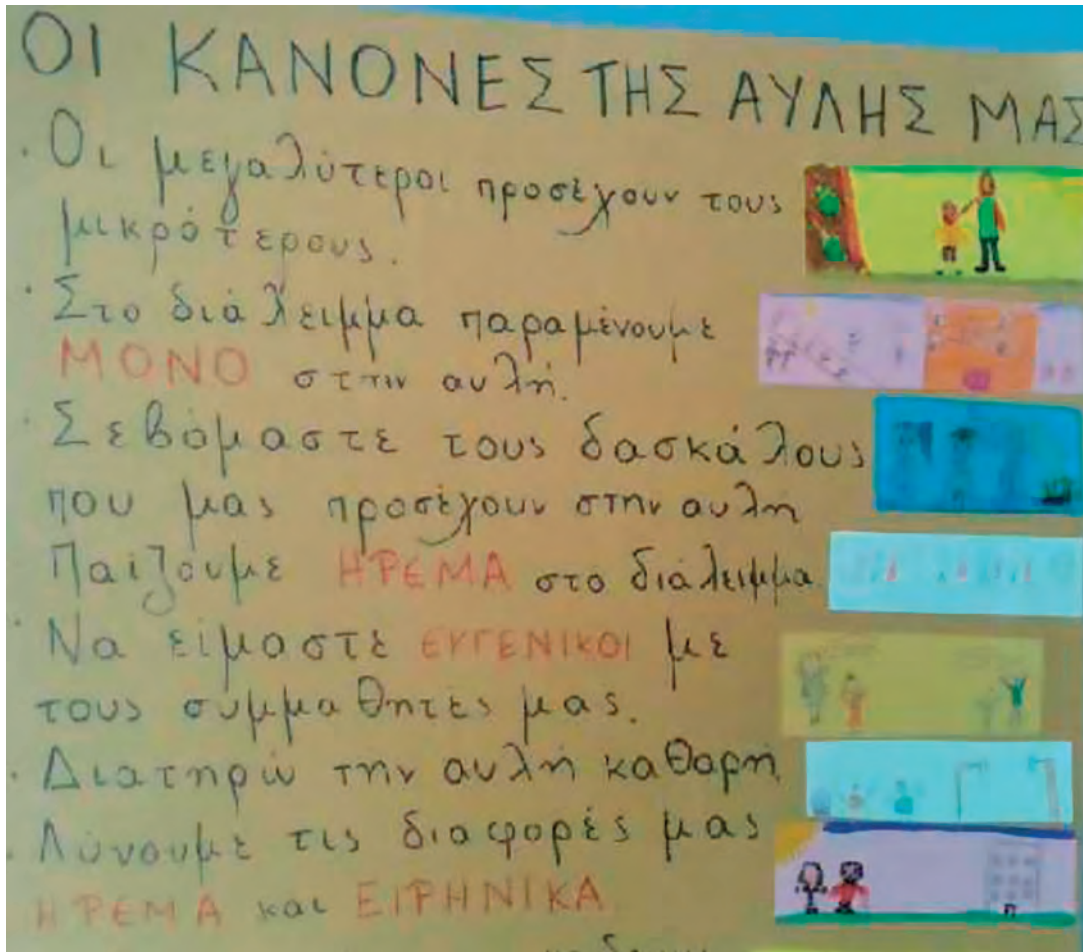 ΟΙ ΚΑΝΟΝΕΣ ΤΗΣ ΑΥΛΗΣ ΜΑΣ
· Οι μεγαλύτεροι προσέχουν τους
μικρότερους.
· Στο διάλειμμα παραμένουμε
ΜΟΝΟ στην αυλή.
· Σεβόμαστε τους δασκάλους
που μας προσέχουν στην αυλή
Παίζουμε ΗΡΕΜΑ στο διάλειμμα.
· Να είμαστε ΕΥΓΕΝΙΚΟΙ με
τους συμμαθητές μας.
· Διατηρώ την αυλή καθαρή
· Λύνουμε τις διαφορές μας
ΗΡΕΜΑ και ΕΙΡΗΝΙΚΑ